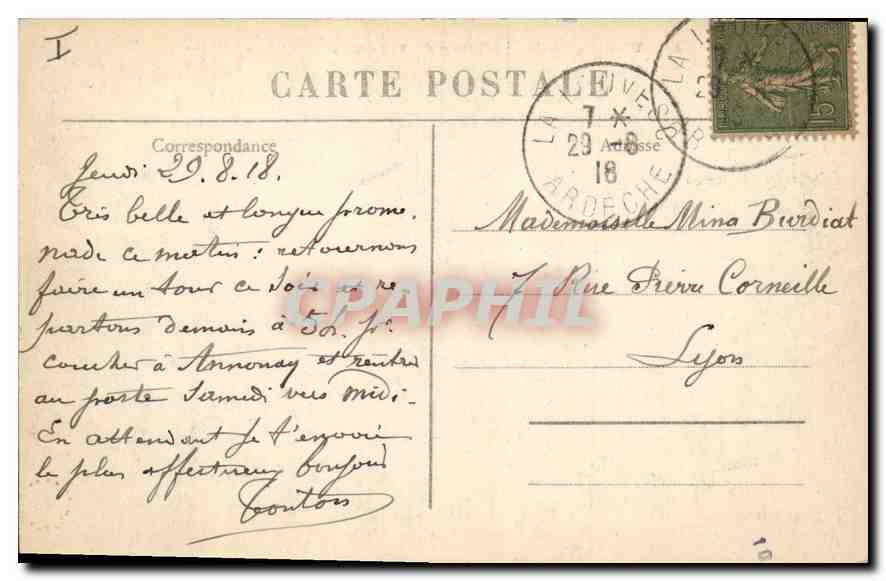 I
CARTE POSTALE
Correspondance
Adresse
LA LOUVESC
7 *
29 -8
18
ARDECHE
LA L
15
Jeudi 29.8.18.
Très belle et longue prome.
nade ce matin : retournons
faire un tour ce soir et re
partons demain à 5h. pr.
coucher à Annonay et rentrer
au poste Samedi vers midi.
En attendant je t'envoie
le plus affectueux bonjour
Tonton
Mademoiselle Mina Burdiat
7 Rue Pierre Corneille
Lyon
CPAPHIL